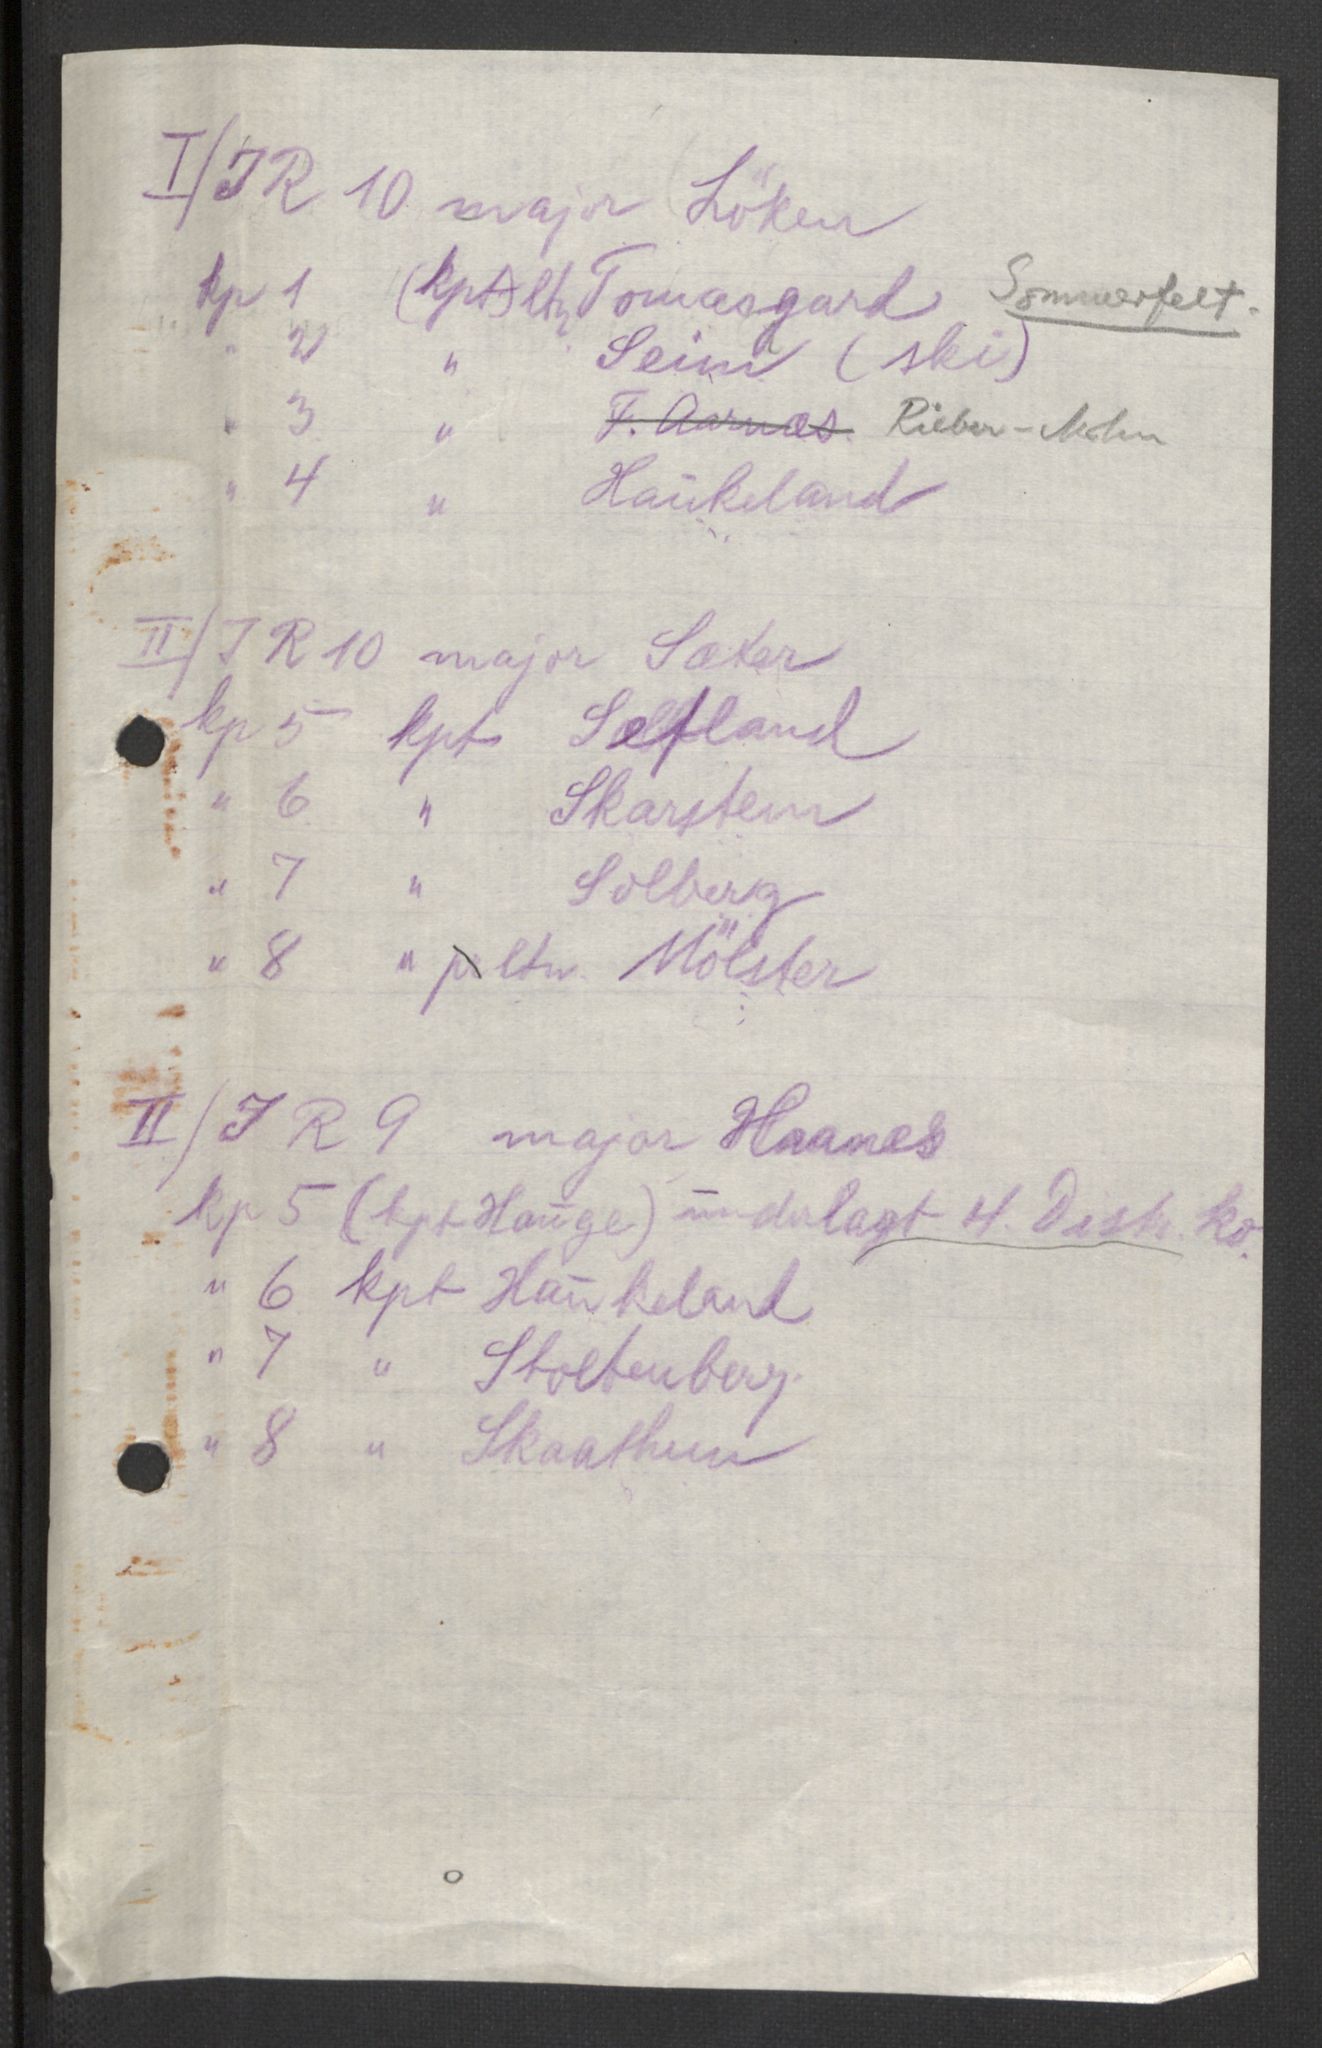 I/JR 10 major Löken
kp 1 (kpt) ltn Tomasgard Sommerfelt.
" 2 " Seim (ski)
" 3 " F. Aarnæs Rieber-Mohn
" 4 " Haukeland
II/JR 10 major Sæter
kp 5 kpt Sælfland
" 6 " Skarstein
" 7 " Solberg
" 8 " p ltn. Mölster
II/JR 9 major Haanes
kp 5 (kpt Hauge) underlagt 4. Distr. ko.
" 6 kpt Haukeland
" 7 " Stoltenberg.
" 8 " Skaathun